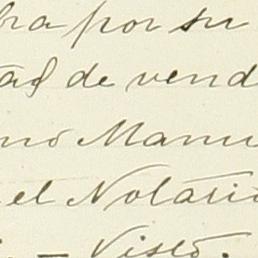 bra por su
tad de vend
no Manu
el Notario
. — Visto.